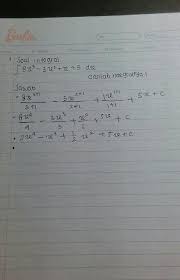 Soal integral
∫ 8x³ - 3x² + x + 5 dx
carilah integralnya!
Jawab
= 8x³⁺¹/3+1 - 3x²⁺¹/2+1 + 1x¹⁺¹/1+1 + 5x + c
= 8x⁴/4 - 3x³/3 + x²/2 + 5x + c
= 2x⁴ - x³ + 1/2 x² + 5x + c